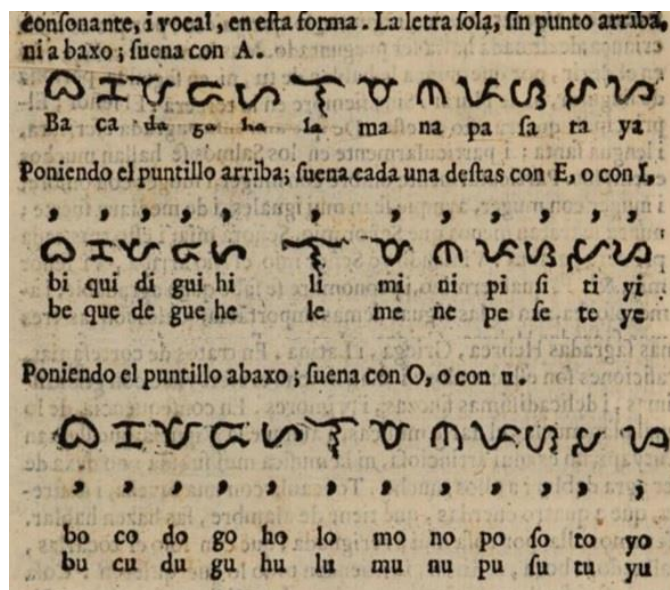 consonante, i vocal, en esta forma. La letra sola, sin punto arriba,
ni abaxo; suena con A.
ᜊ ᜃ ᜇ ᜄ ᜑ ᜎ ᜋ ᜈ ᜉ ᜐ ᜆ ᜌ
Ba ca da ga ha la ma na pa sa ta ya
Poniendo el puntillo arriba; suena cada una destas con E, o con I,
ᜊᜒ ᜃᜒ ᜇᜒ ᜄᜒ ᜑᜒ ᜎᜒ ᜋᜒ ᜈᜒ ᜉᜒ ᜐᜒ ᜆᜒ ᜌᜒ
bi qui di gui hi li mi ni pi si ti yi
be que de gue he le me ne pe se te ye
Poniendo el puntillo abaxo; suena con O, o con u.
ᜊᜓ ᜃᜓ ᜇᜓ ᜄᜓ ᜑᜓ ᜎᜓ ᜋᜓ ᜈᜓ ᜉᜓ ᜐᜓ ᜆᜓ ᜌᜓ
bo co do go ho lo mo no po so to yo
bu cu du gu hu lu mu nu pu su tu yu